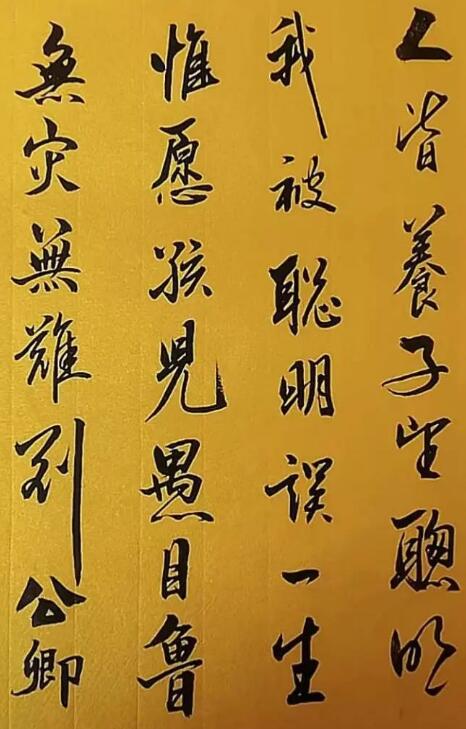 人皆養子望聰明
我被聪明誤一生
惟愿孩兒愚且魯
無灾無難到公卿